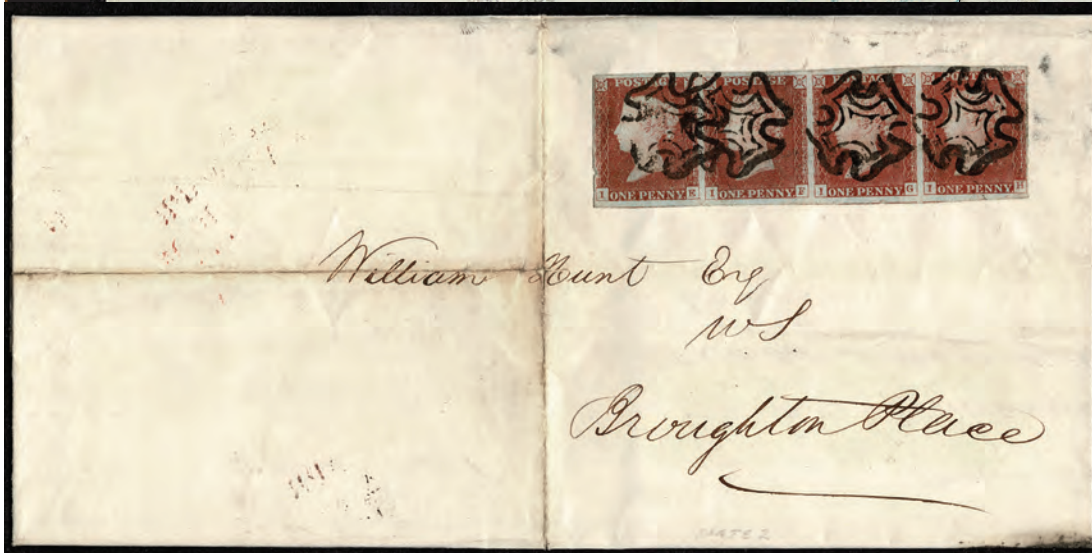 POSTAGE POSTAGE
I ONE PENNY E I ONE PENNY F I ONE PENNY G I ONE PENNY H
William Hunt Esq
WS
Broughton Place
PLATE 2